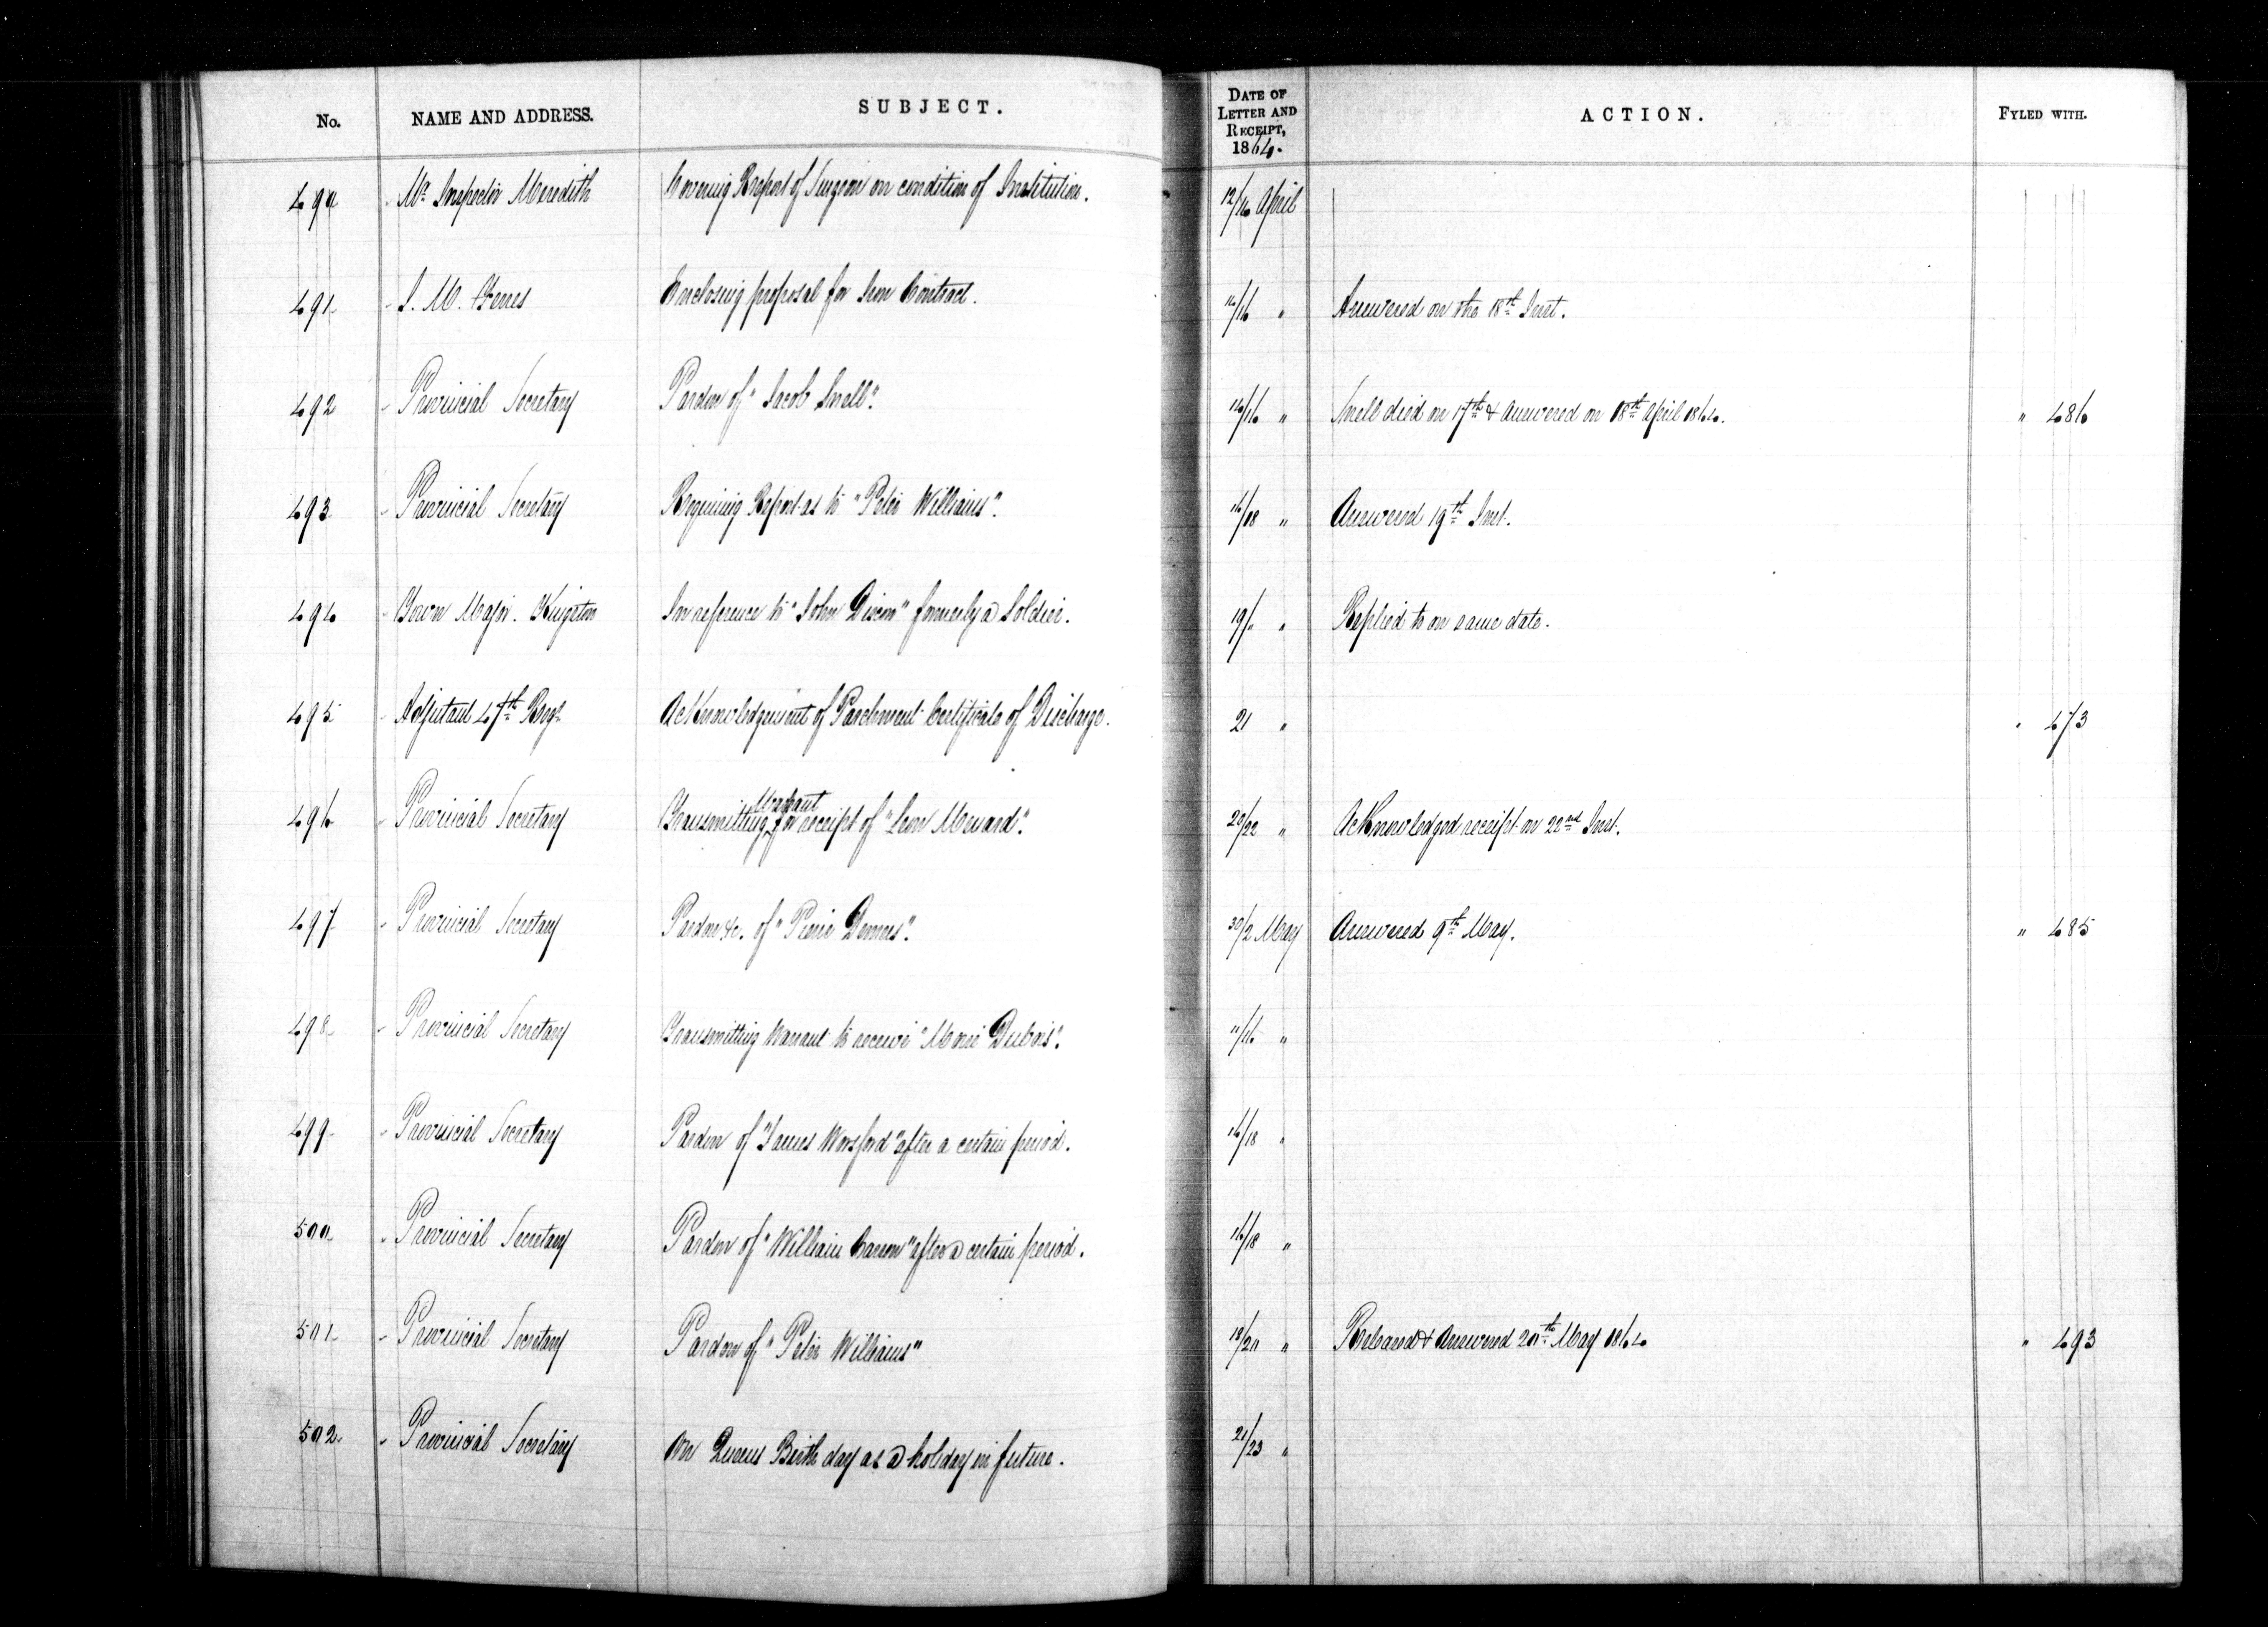 No. NAME AND ADDRESS. SUBJECT. DATE OF LETTER AND RECEIPT, 1864. ACTION. FYLED WITH.
490 Mr. Inspector Meredith Covering Report of Surgeon on condition of Institution. 12/14 April
491 M. Enclosing proposal for Contract. 14/16 " Answered on the 18th Inst.
492 " Provincial Secretary Pardon of "Jacob Snell". 14/16 " Snell died on 17th & answered on 18th April 1864. " 486
493 " Provincial Secretary Requiring Report as to "Peter Williams". 16/18 " Answered 19th Inst.
494 " Town Major. Kingston In reference to "John Dixon" formerly a Soldier. 19/" " Replied to on same date.
495 " Adjutant 47th Regt Acknowledgement of Parchment Certificate of Discharge. 21 " " 473
496 " Provincial Secretary Transmitting Warrant for receipt of "Leon Menard". 20/22 " Acknowledged receipt on 22nd Inst.
497 " Provincial Secretary Pardon &c. of "Pierre Demers". 30/2 May Answered 9th May. " 485
498 " Provincial Secretary Transmitting Warrant to receive "Marie Dubois". 11/16 "
499 " Provincial Secretary Pardon of "James Worsford" after a certain period. 16/18 "
500 " Provincial Secretary Pardon of "William Carson" after a certain period. 16/18 "
501 " Provincial Secretary Pardon of "Peter Williams" 18/20 " Released & Answered 20th May 1864 " 493
502 " Provincial Secretary On Queens Birth day as a holiday in future. 21/23 "